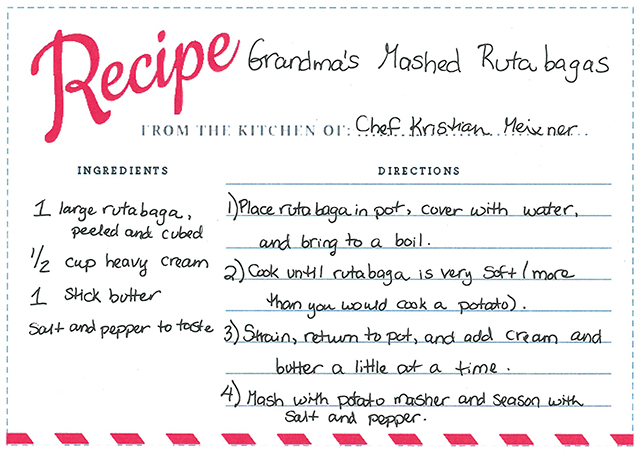 Recipe Grandma's Mashed Rutabagas
FROM THE KITCHEN OF: Chef Kristian Meixner
INGREDIENTS
1 large rutabaga,
peeled and cubed
1/2 cup heavy cream
1 stick butter
Salt and pepper to taste
DIRECTIONS
1) Place rutabaga in pot, cover with water,
and bring to a boil.
2) Cook until rutabaga is very soft (more
than you would cook a potato).
3) Strain, return to pot, and add cream and
butter a little at a time.
4) Mash with potato masher and season with
salt and pepper.